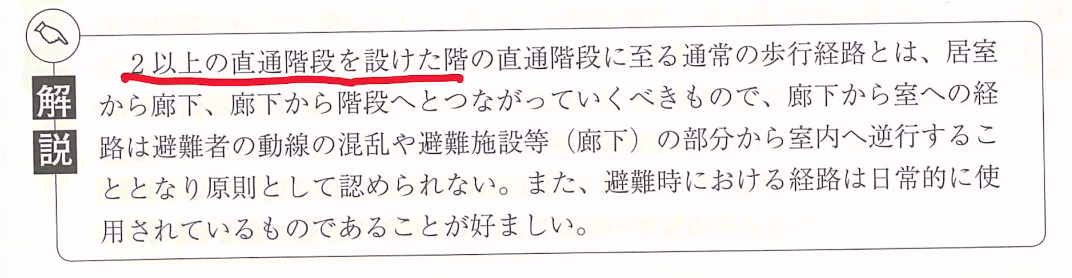 解説
2以上の直通階段を設けた階の直通階段に至る通常の歩行経路とは、居室
から廊下、廊下から階段へとつながっていくべきもので、廊下から室への経
路は避難者の動線の混乱や避難施設等（廊下）の部分から室内へ逆行するこ
ととなり原則として認められない。また、避難時における経路は日常的に使
用されているものであることが好ましい。